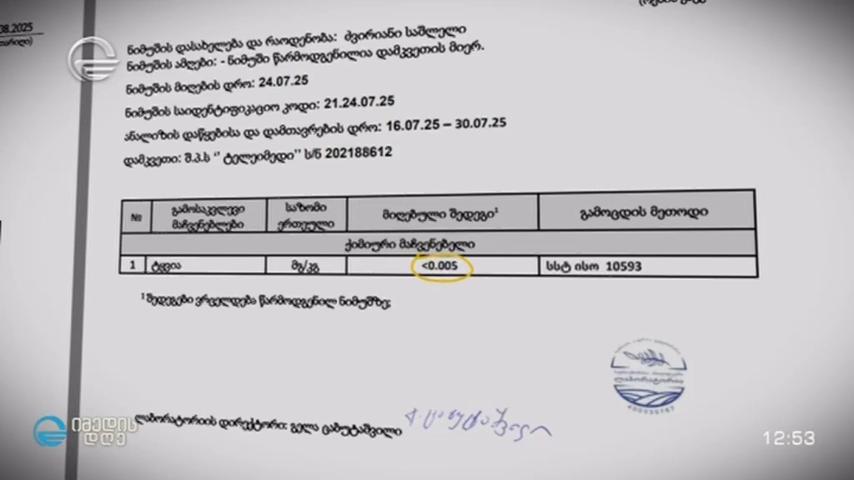 08.2025
ნიმუშის დასახელება და რაოდენობა: ძვირიანი საშლელი
ნიმუშის აღება: - ნიმუში წარმოდგენილია დამკვეთის მიერ.
ნიმუშის მიღების დრო: 24.07.25
ნიმუშის საიდენტიფიკაციო კოდი: 21.24.07.25
ანალიზის დაწყებისა და დამთავრების დრო: 16.07.25 – 30.07.25
დამკვეთი: შ.პ.ს ‘‘ ტელეიმედი’’ ს/ნ 202188612
№ გამოსაკვლევი მაჩვენებლები საზომი ერთეული მიღებული შედეგი¹ გამოცდის მეთოდი
ქიმიური მაჩვენებელი
1 ტყვია მგ/კგ <0.005 სსტ ისო 10593
¹ შედეგები ვრცელდება წარმოდგენილ ნიმუშზე;
ლაბორატორია
ლაბორატორიის დირექტორი: გელა ცაბუტაშვილი
იმედის
დღე
12:53